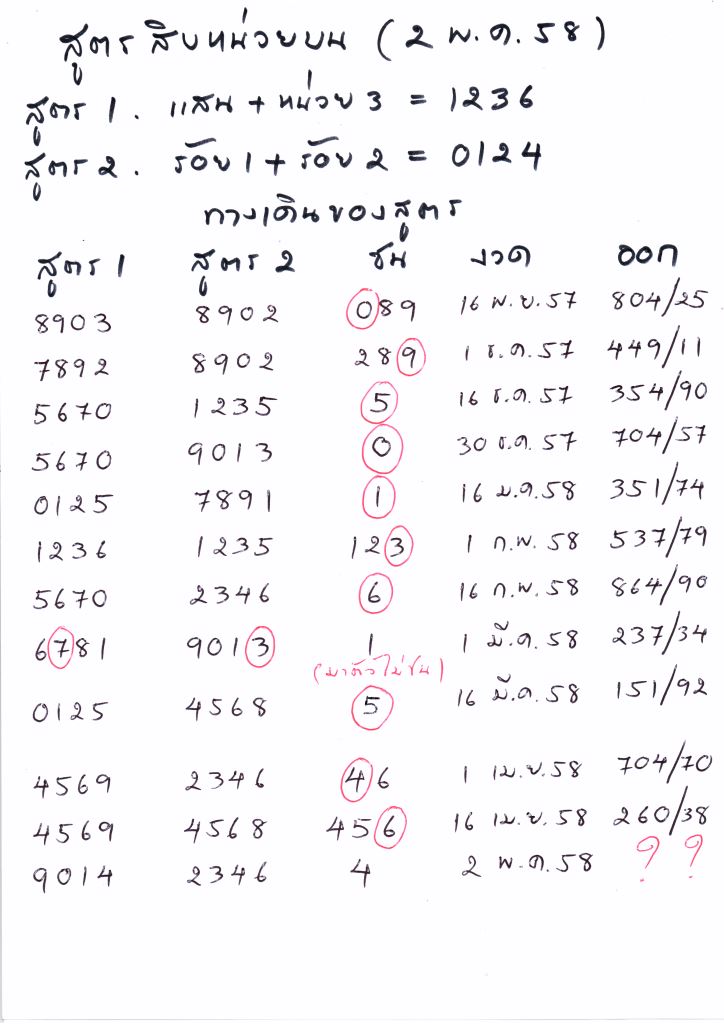 สูตรสิบหน่วยบน (2 พ.ค.58)
สูตร 1. แสน + หน่วย 3 = 1236
สูตร 2. ร้อย 1 + ร้อย 2 = 0124
ทางเดินของสูตร
สูตร 1 สูตร 2 ชน งวด ออก
8903 8902 089 16 พ.ย.57 804/25
7892 8902 289 1 ธ.ค.57 449/11
5670 1235 5 16 ธ.ค.57 354/90
5670 9013 0 30 ธ.ค.57 704/57
0125 7891 1 16 ม.ค.58 351/74
1236 1235 123 1 ก.พ.58 537/79
5670 2346 6 16 ก.พ.58 864/90
6781 9013 1 1 มี.ค.58 237/34
(มาตัวไม่ชน)
0125 4568 5 16 มี.ค.58 151/92
4569 2346 46 1 เม.ย.58 704/70
4569 4568 456 16 เม.ย.58 260/38
9014 2346 4 2 พ.ค.58 ? ?